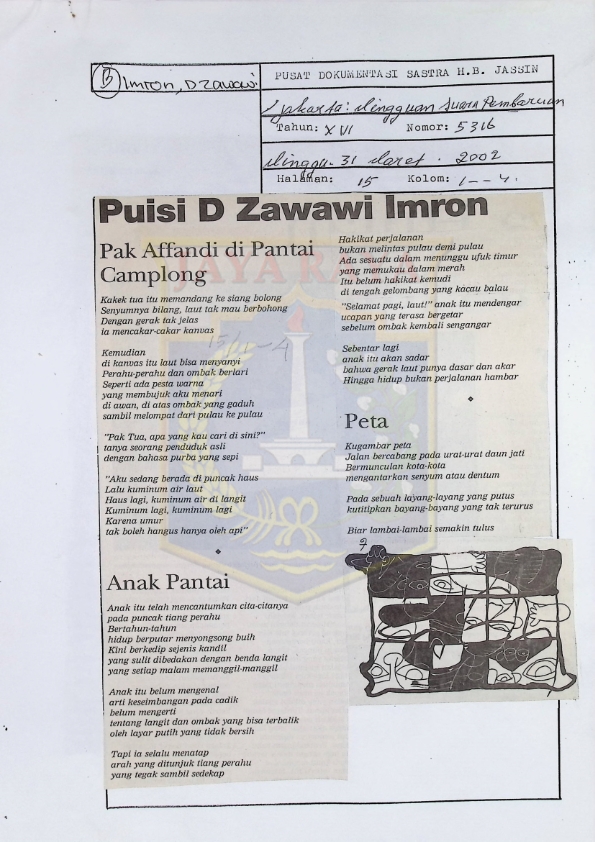 B Imron, D Zawawi
PUSAT DOKUMENTASI SASTRA H.B. JASSIN
Jakarta: Mingguan Suara Pembaruan
Tahun: XVI Nomor: 5316
Minggu. 31 Maret. 2002
Halaman: 15 Kolom: 1--4.
Puisi D Zawawi Imron
Pak Affandi di Pantai
Camplong
Kakek tua itu memandang ke siang bolong
Senyumnya bilang, laut tak mau berbohong
Dengan gerak tak jelas
ia mencakar-cakar kanvas
Kemudian
di kanvas itu laut bisa menyanyi
Perahu-perahu dan ombak berlari
Seperti ada pesta warna
yang membujuk aku menari
di awan, di atas ombak yang gaduh
sambil melompat dari pulau ke pulau
"Pak Tua, apa yang kau cari di sini?"
tanya seorang penduduk asli
dengan bahasa purba yang sepi
"Aku sedang berada di puncak haus
Lalu kuminum air laut
Haus lagi, kuminum air di langit
Kuminum lagi, kuminum lagi
Karena umur
tak boleh hangus hanya oleh api"
Anak Pantai
Anak itu telah mencantumkan cita-citanya
pada puncak tiang perahu
Bertahun-tahun
hidup berputar menyongsong buih
Kini berkedip sejenis kandil
yang sulit dibedakan dengan benda langit
yang setiap malam memanggil-manggil
Anak itu belum mengenal
arti keseimbangan pada cadik
belum mengerti
tentang langit dan ombak yang bisa terbalik
oleh layar putih yang tidak bersih
Tapi ia selalu menatap
arah yang ditunjuk tiang perahu
yang tegak sambil sedekap
Hakikat perjalanan
bukan melintas pulau demi pulau
Ada sesuatu dalam menunggu ufuk timur
yang memukau dalam merah
Itu belum hakikat kemudi
di tengah gelombang yang kacau balau
"Selamat pagi, laut!" anak itu mendengar
ucapan yang terasa bergetar
sebelum ombak kembali sengangar
Sebentar lagi
anak itu akan sadar
bahwa gerak laut punya dasar dan akar
Hingga hidup bukan perjalanan hambar
Peta
Kugambar peta
Jalan bercabang pada urat-urat daun jati
Bermunculan kota-kota
mengantarkan senyum atau dentum
Pada sebuah layang-layang yang putus
kutitipkan bayang-bayang yang tak terurus
Biar lambai-lambai semakin tulus
JAYA RA